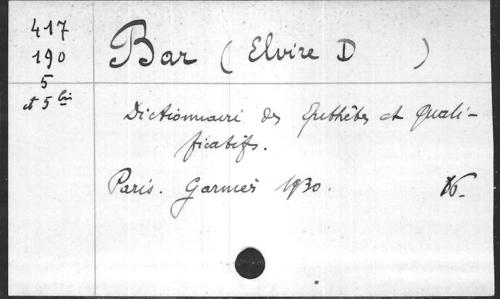 417
190
5
et 5 bis
Bar (Elvire D )
Dictionnaire des Epithètes et Quali-
ficatifs.
Paris. Garnier 1930.